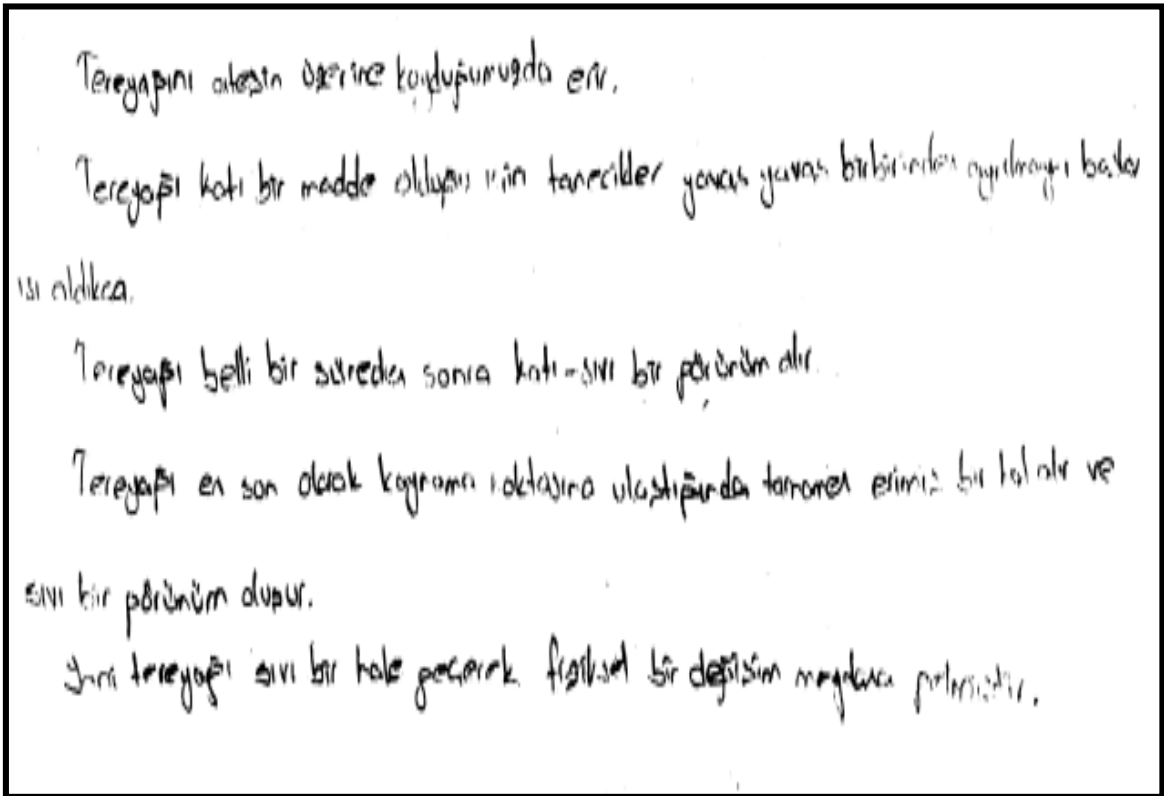 Tereyağını ateşin üzerine koyduğumuzda erir.
Tereyağı katı bir madde olduğu için tanecikler yavaş yavaş birbirinden ayrılmayı başlar
ısı aldıkca.
Tereyağı belli bir süreden sonra katı-sıvı bir görünüm alır.
Tereyağı en son olarak kaynama noktasına ulaştığında tamamen erimiş bir hal alır ve
sıvı bir görünüm oluşur.
Yani tereyağı sıvı bir hale geçerek fiziksel bir değişim meydana gelmiştir.